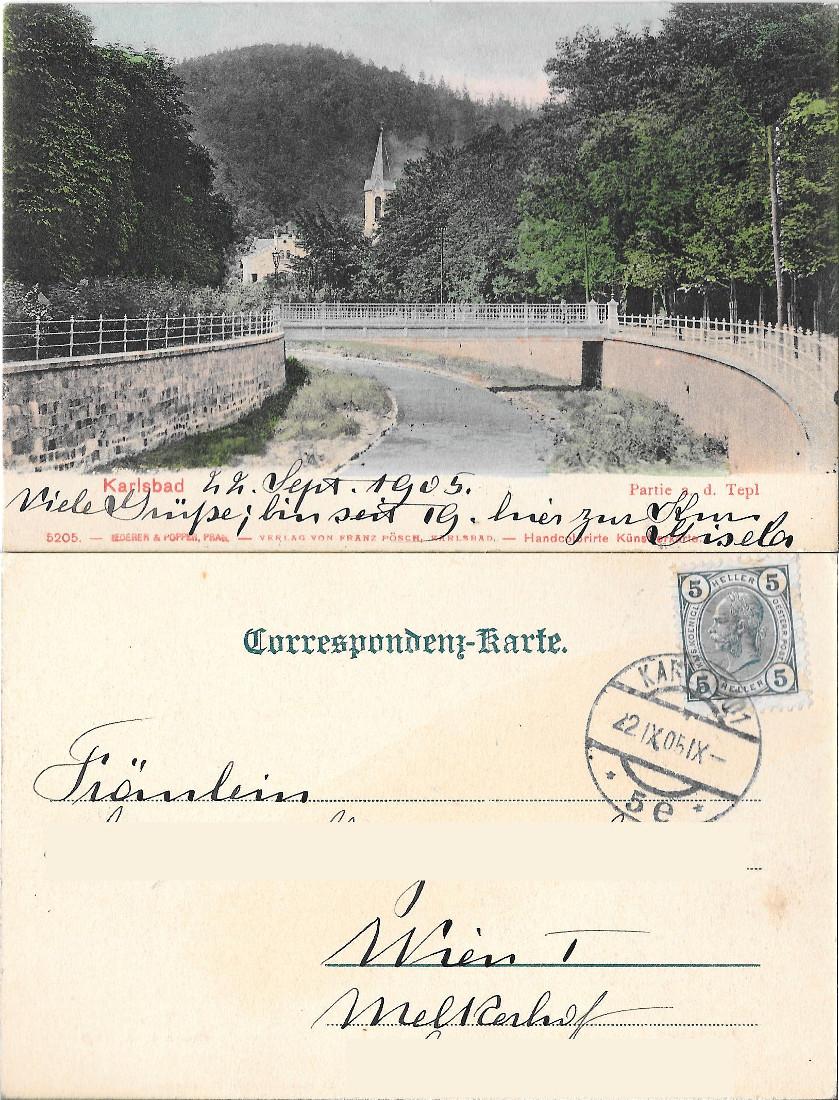 Karlsbad 22. Sept. 1905. Partie a. d. Tepl
Viele Grüße; bin seit 19. hier zur Kur
Gisela
5205. — LEDERER & POPPER, PRAG. — VERLAG VON FRANZ PÖSCH, KARLSBAD. — Handcolorirte Künstlerkarte
Correspondenz-Karte.
5 HELLER 5
5 HELLER 5
KAR
22 IX 05 IX–
* 5e *
Fräulein
Wien I
Melkerhof